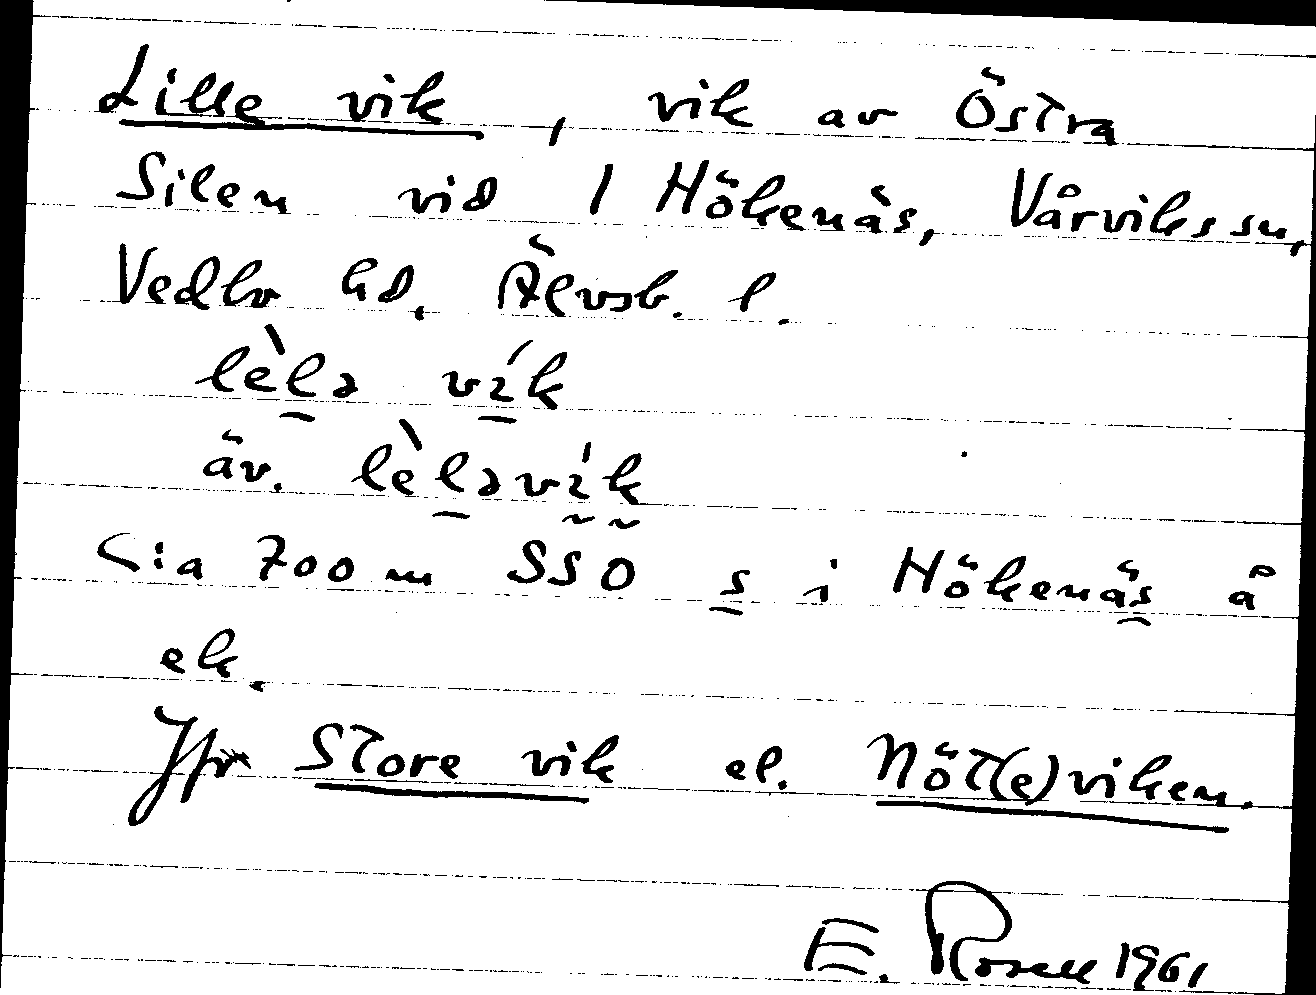 Lille vik, vik av Östra
Silen vid 1 Hökenäs, Vårvikssn,
Vedbo hd, Älvsb. l.
lèlə vík
äv. lèləvík
C:a 700 m SSÖ s i Hökenäs å
ek.
Jfr Store vik el. Nöt(e)viken.
E. Rosell 1961